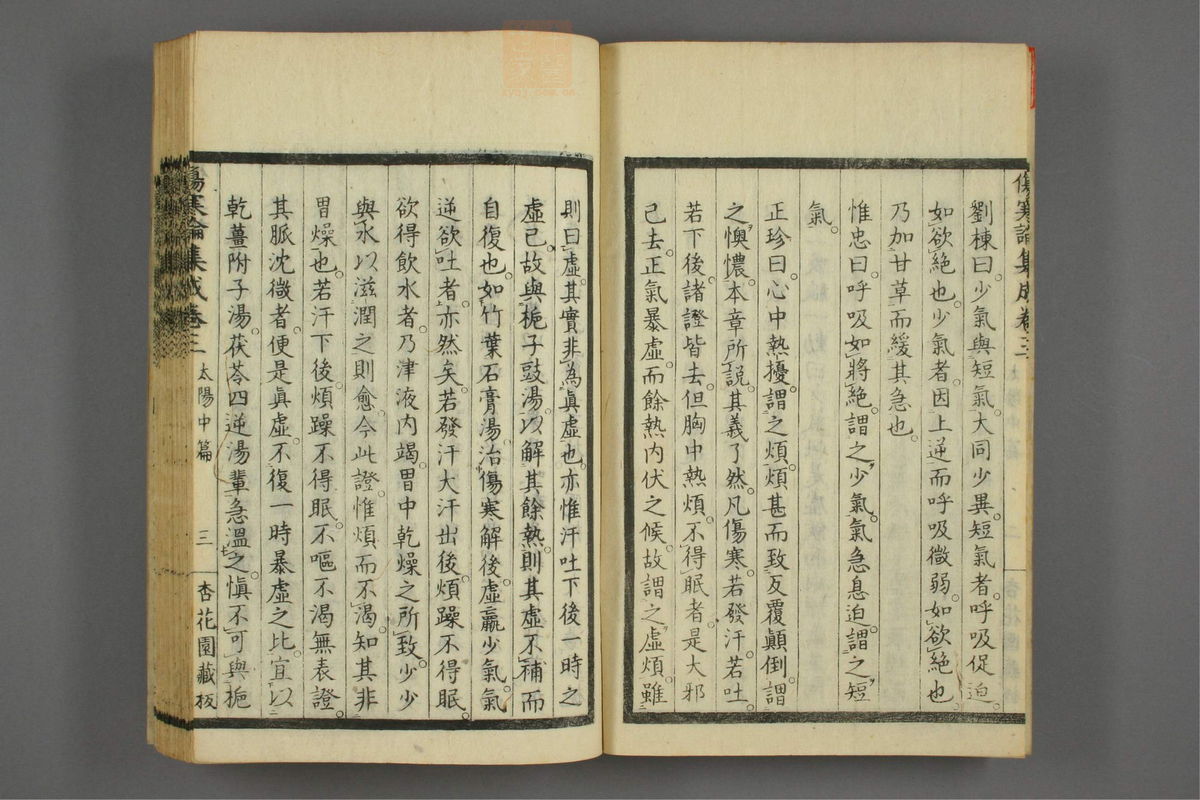 傷寒論集成卷三
劉棟曰。少氣與短氣。大同少異。短氣者。呼吸促迫。
如欲絕也。少氣者。因上逆而呼吸微弱。如欲絕也。
乃加甘草而緩其急也。
惟忠曰。呼吸如將絕。謂之少氣。氣急息迫。謂之短
氣。
正珍曰。心中熱擾。謂之煩。煩甚而致反覆顛倒。謂
之懊憹。本章所說。其義了然。凡傷寒。若發汗。若吐。
若下後。諸證皆去。但胸中熱煩。不得眠者。是大邪
已去。正氣暴虛。而餘熱內伏之候。故謂之虛煩。雖
則曰虛。其實非為眞虛也。亦惟汗吐下後。一時之
虛已。故與梔子豉湯。以解其餘熱。則其虛不補而
自復也。如竹葉石膏湯。治傷寒解後。虛羸少氣。氣
逆欲吐者。亦然矣。若發汗大汗出後。煩躁不得眠。
欲得飲水者。乃津液內竭。胃中乾燥之所致。少少
與水以滋潤之則愈。今此證。惟煩而不渴。知其非
胃燥也。若汗下後。煩躁不得眠。不嘔不渴。無表證。
其脈沈微者。便是眞虛。不復一時暴虛之比。宜以
乾薑附子湯。茯苓四逆湯輩。急溫之。愼不可與梔
傷寒論集成卷三 太陽中篇 三 杏花園藏板